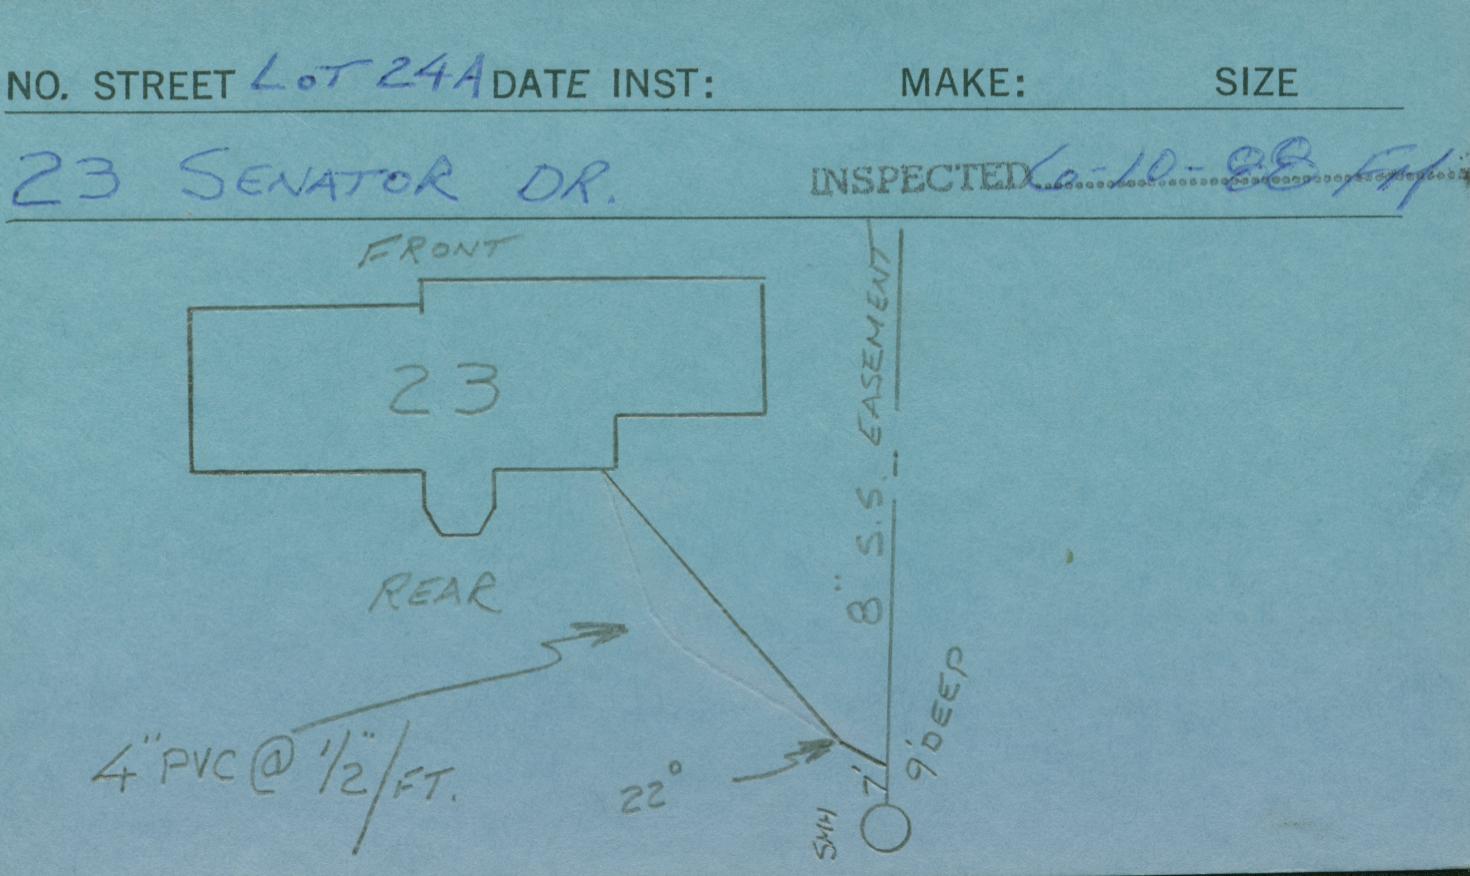 NO. STREET LOT 24A DATE INST: MAKE: SIZE
23 SENATOR DR. INSPECTED 6-10-88
FRONT
23
8" S.S. EASEMENT
REAR
9' DEEP
4" PVC @ 1/2"/FT.
22°
7'
SMH